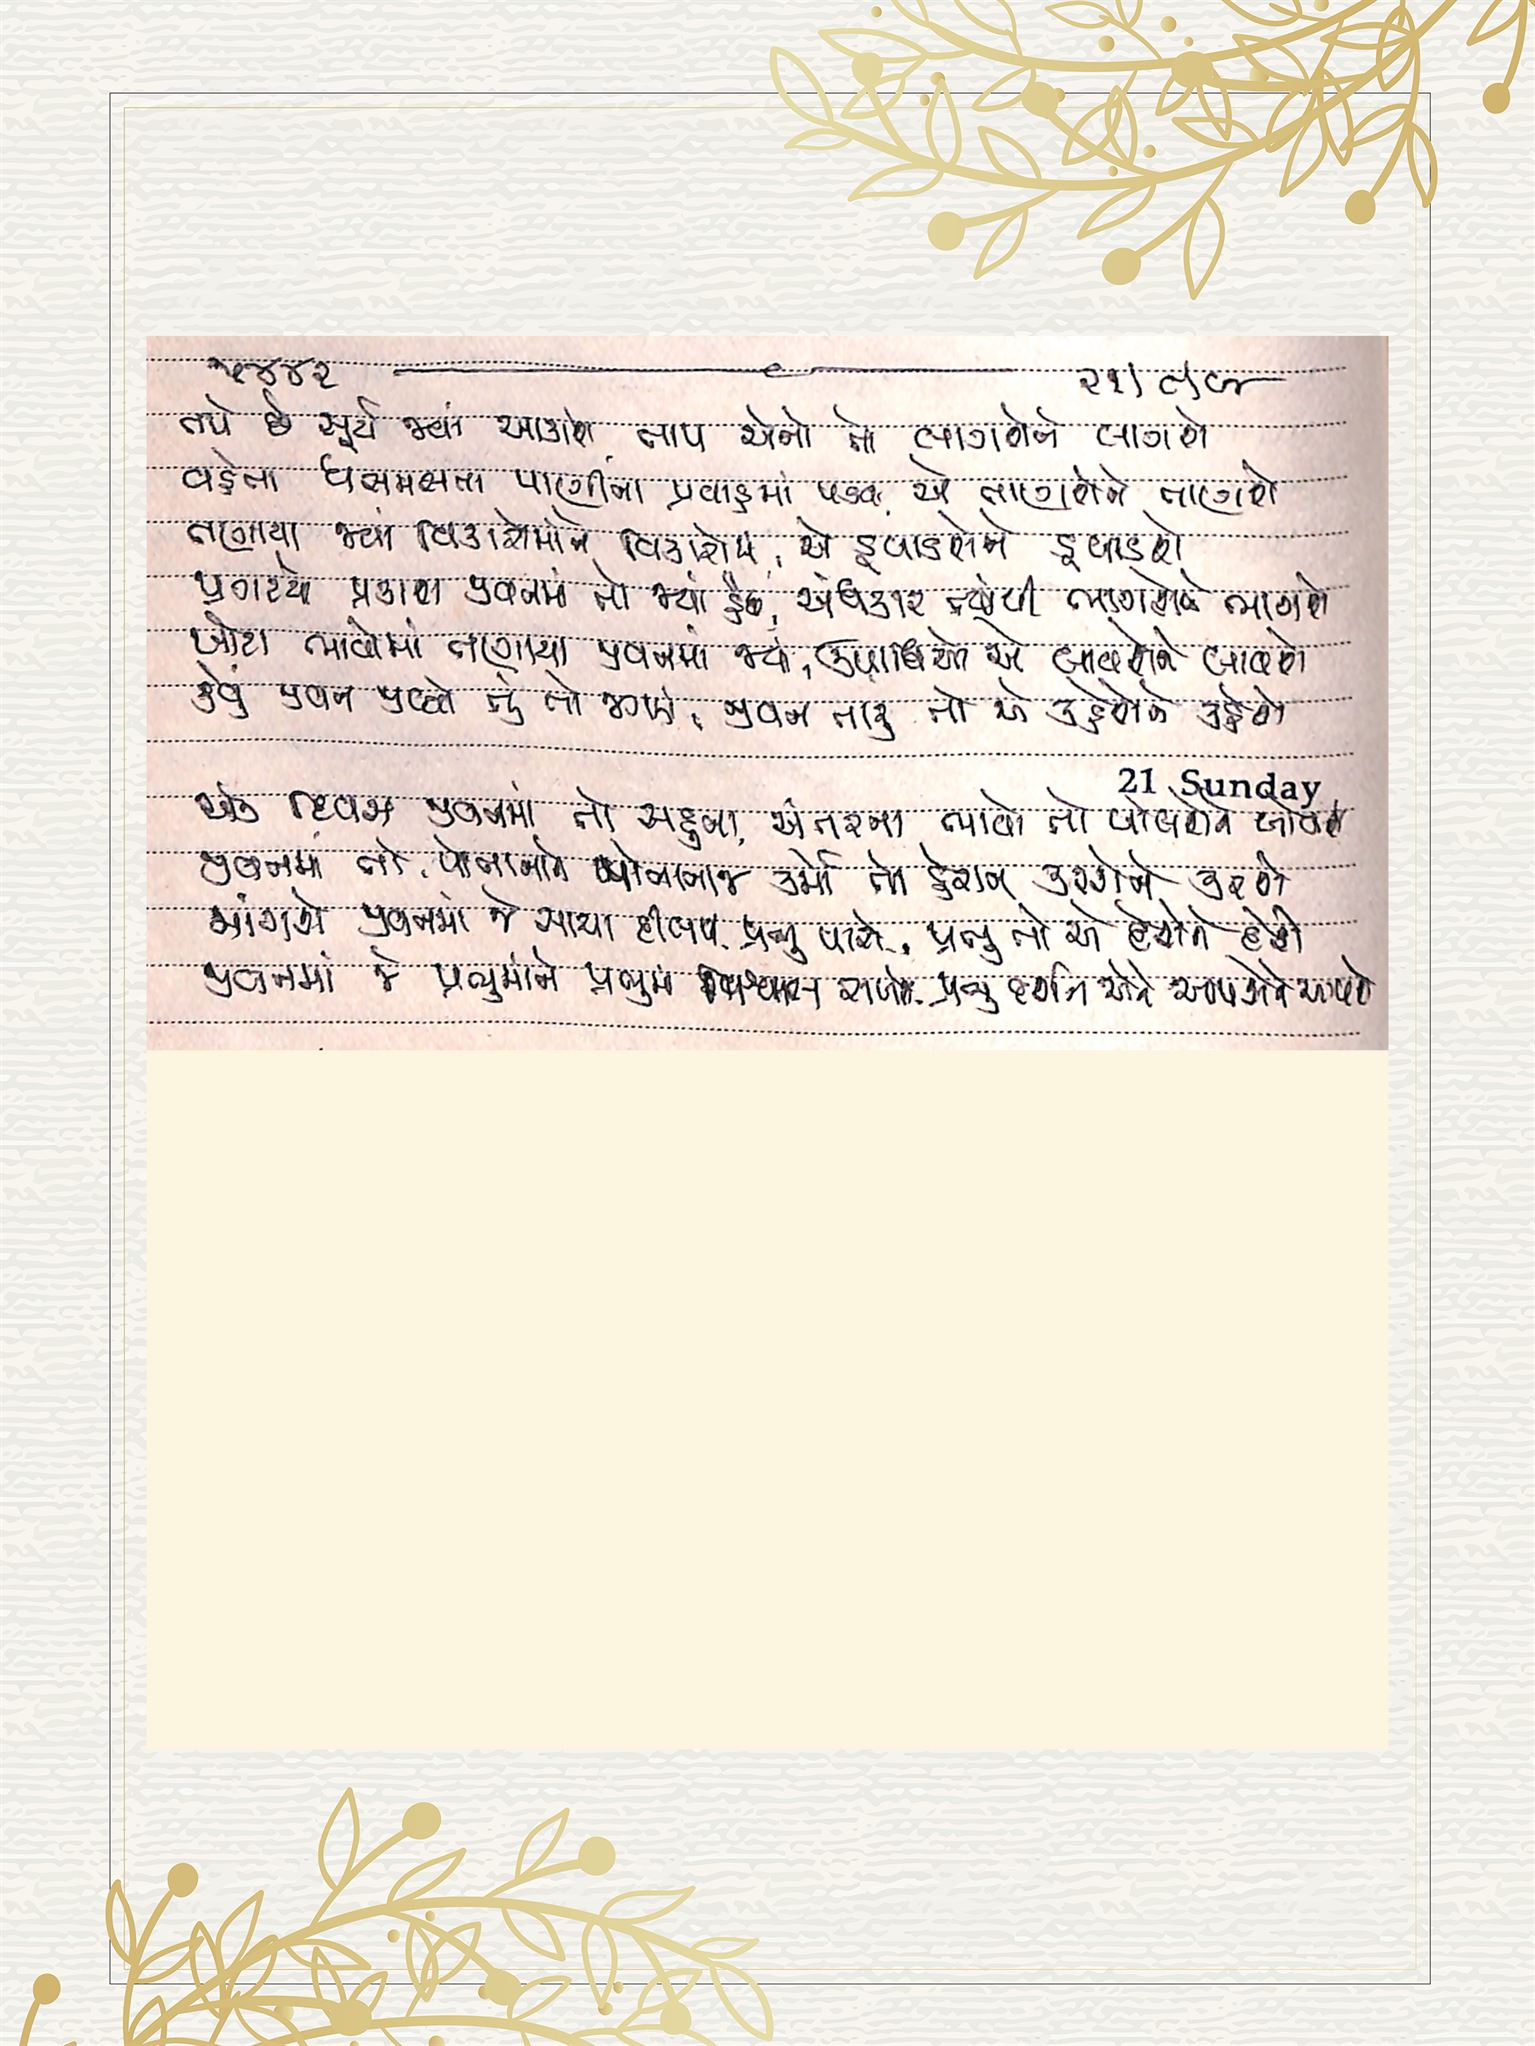 ૫૪૪૨ ૨૧/૯/૯૭
તપે છે સૂર્ય જ્યાં આકાશે તાપ એનો તો લાગશેને લાગશે
વહેતા ધસમસતા પાણીના પ્રવાહમાં પડવા, એ તાણશેને તાણશે
તણાયા જ્યાં વિકારોમાંને વિકારોમાં, એ ડૂબાડશેને ડૂબાડશે
પ્રગટયો પ્રકાશ જીવનમાં તો જ્યાં હૈયે, અંધકાર ત્યાંથી ભાગશેને ભાગશે
ખોટા ભાવોમાં તણાયા જીવનમાં જ્યાં, ઉપાધિઓ એ લાવશેને લાવશે
કેવું જીવન જીવ્યો તું તો જગમાં, જીવન તારું તો એ કહેશેને કહેશે
21 Sunday
એક દિવસ જીવનમાં તો સહુના, અંતરના ભાવો તો બોલશેને બોલશે
જીવનમાં તો, પોતાનાને પોતાનાજ કર્મો તો હેરાન કરશેને કરશે
માંગશો જીવનમાં જે સાચા દીલથી પ્રભુ પાસે, પ્રભુ તો એ દેશેને દેશે
જીવનમાં જે પ્રભુમાંને પ્રભુમાં વિશ્વાસ રાખશે, પ્રભુ દર્શન એને આપશેને આપશે